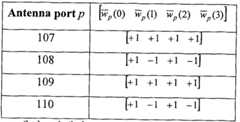 Antenna port p [w̅p(0) w̅p(1) w̅p(2) w̅p(3)]
107 [+1 +1 +1 +1]
108 [+1 −1 +1 −1]
109 [+1 +1 +1 +1]
110 [+1 −1 +1 −1]